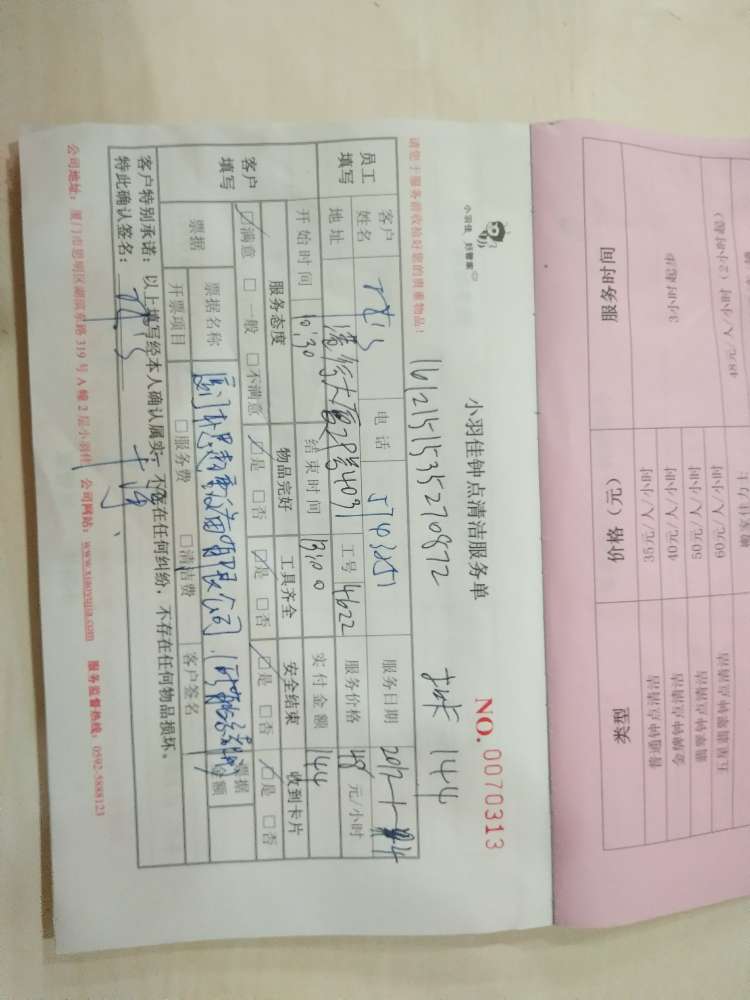 小羽佳 好管家
小羽佳钟点清洁服务单
NO. 0070313
1612151535270872
144
请您于服务前收拾好您的贵重物品!
员工填写
客户姓名
电话 5743251
服务日期
地址
工号 4622
服务价格 48 元/小时
开始时间 10:30
结束时间 13:00
实付金额 144
客户填写
服务态度 物品完好 工具齐全 安全结束 收到卡片
☑满意 □一般 □不满意 ☑是 □否 ☑是 □否 ☑是 □否 ☑是 □否
票据
票据名称
票据金额
开票项目 □服务费 □清洁费 客户签名
客户特别承诺:以上填写经本人确认属实,不存在任何纠纷,不存在任何物品损坏。
特此确认签名:
公司地址:厦门市思明区湖滨东路 319 号 A 幢 2 层小羽佳 公司网站:www.xiaoyujia.com 服务监督热线:0592-5888123
类型 价格(元) 服务时间
普通钟点清洁 35元/人/小时
金牌钟点清洁 40元/人/小时 3小时起步
翡翠钟点清洁 50元/人/小时
五星翡翠钟点清洁 60元/人/小时
48元/人/小时(2小时起)